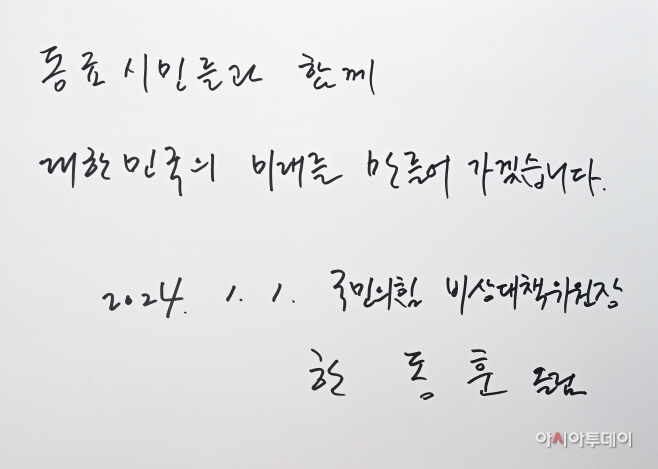 동료 시민들과 함께
대한민국의 미래를 만들어 가겠습니다.
2024. 1. 1. 국민의힘 비상대책위원장
한 동 훈 올림
아시아투데이